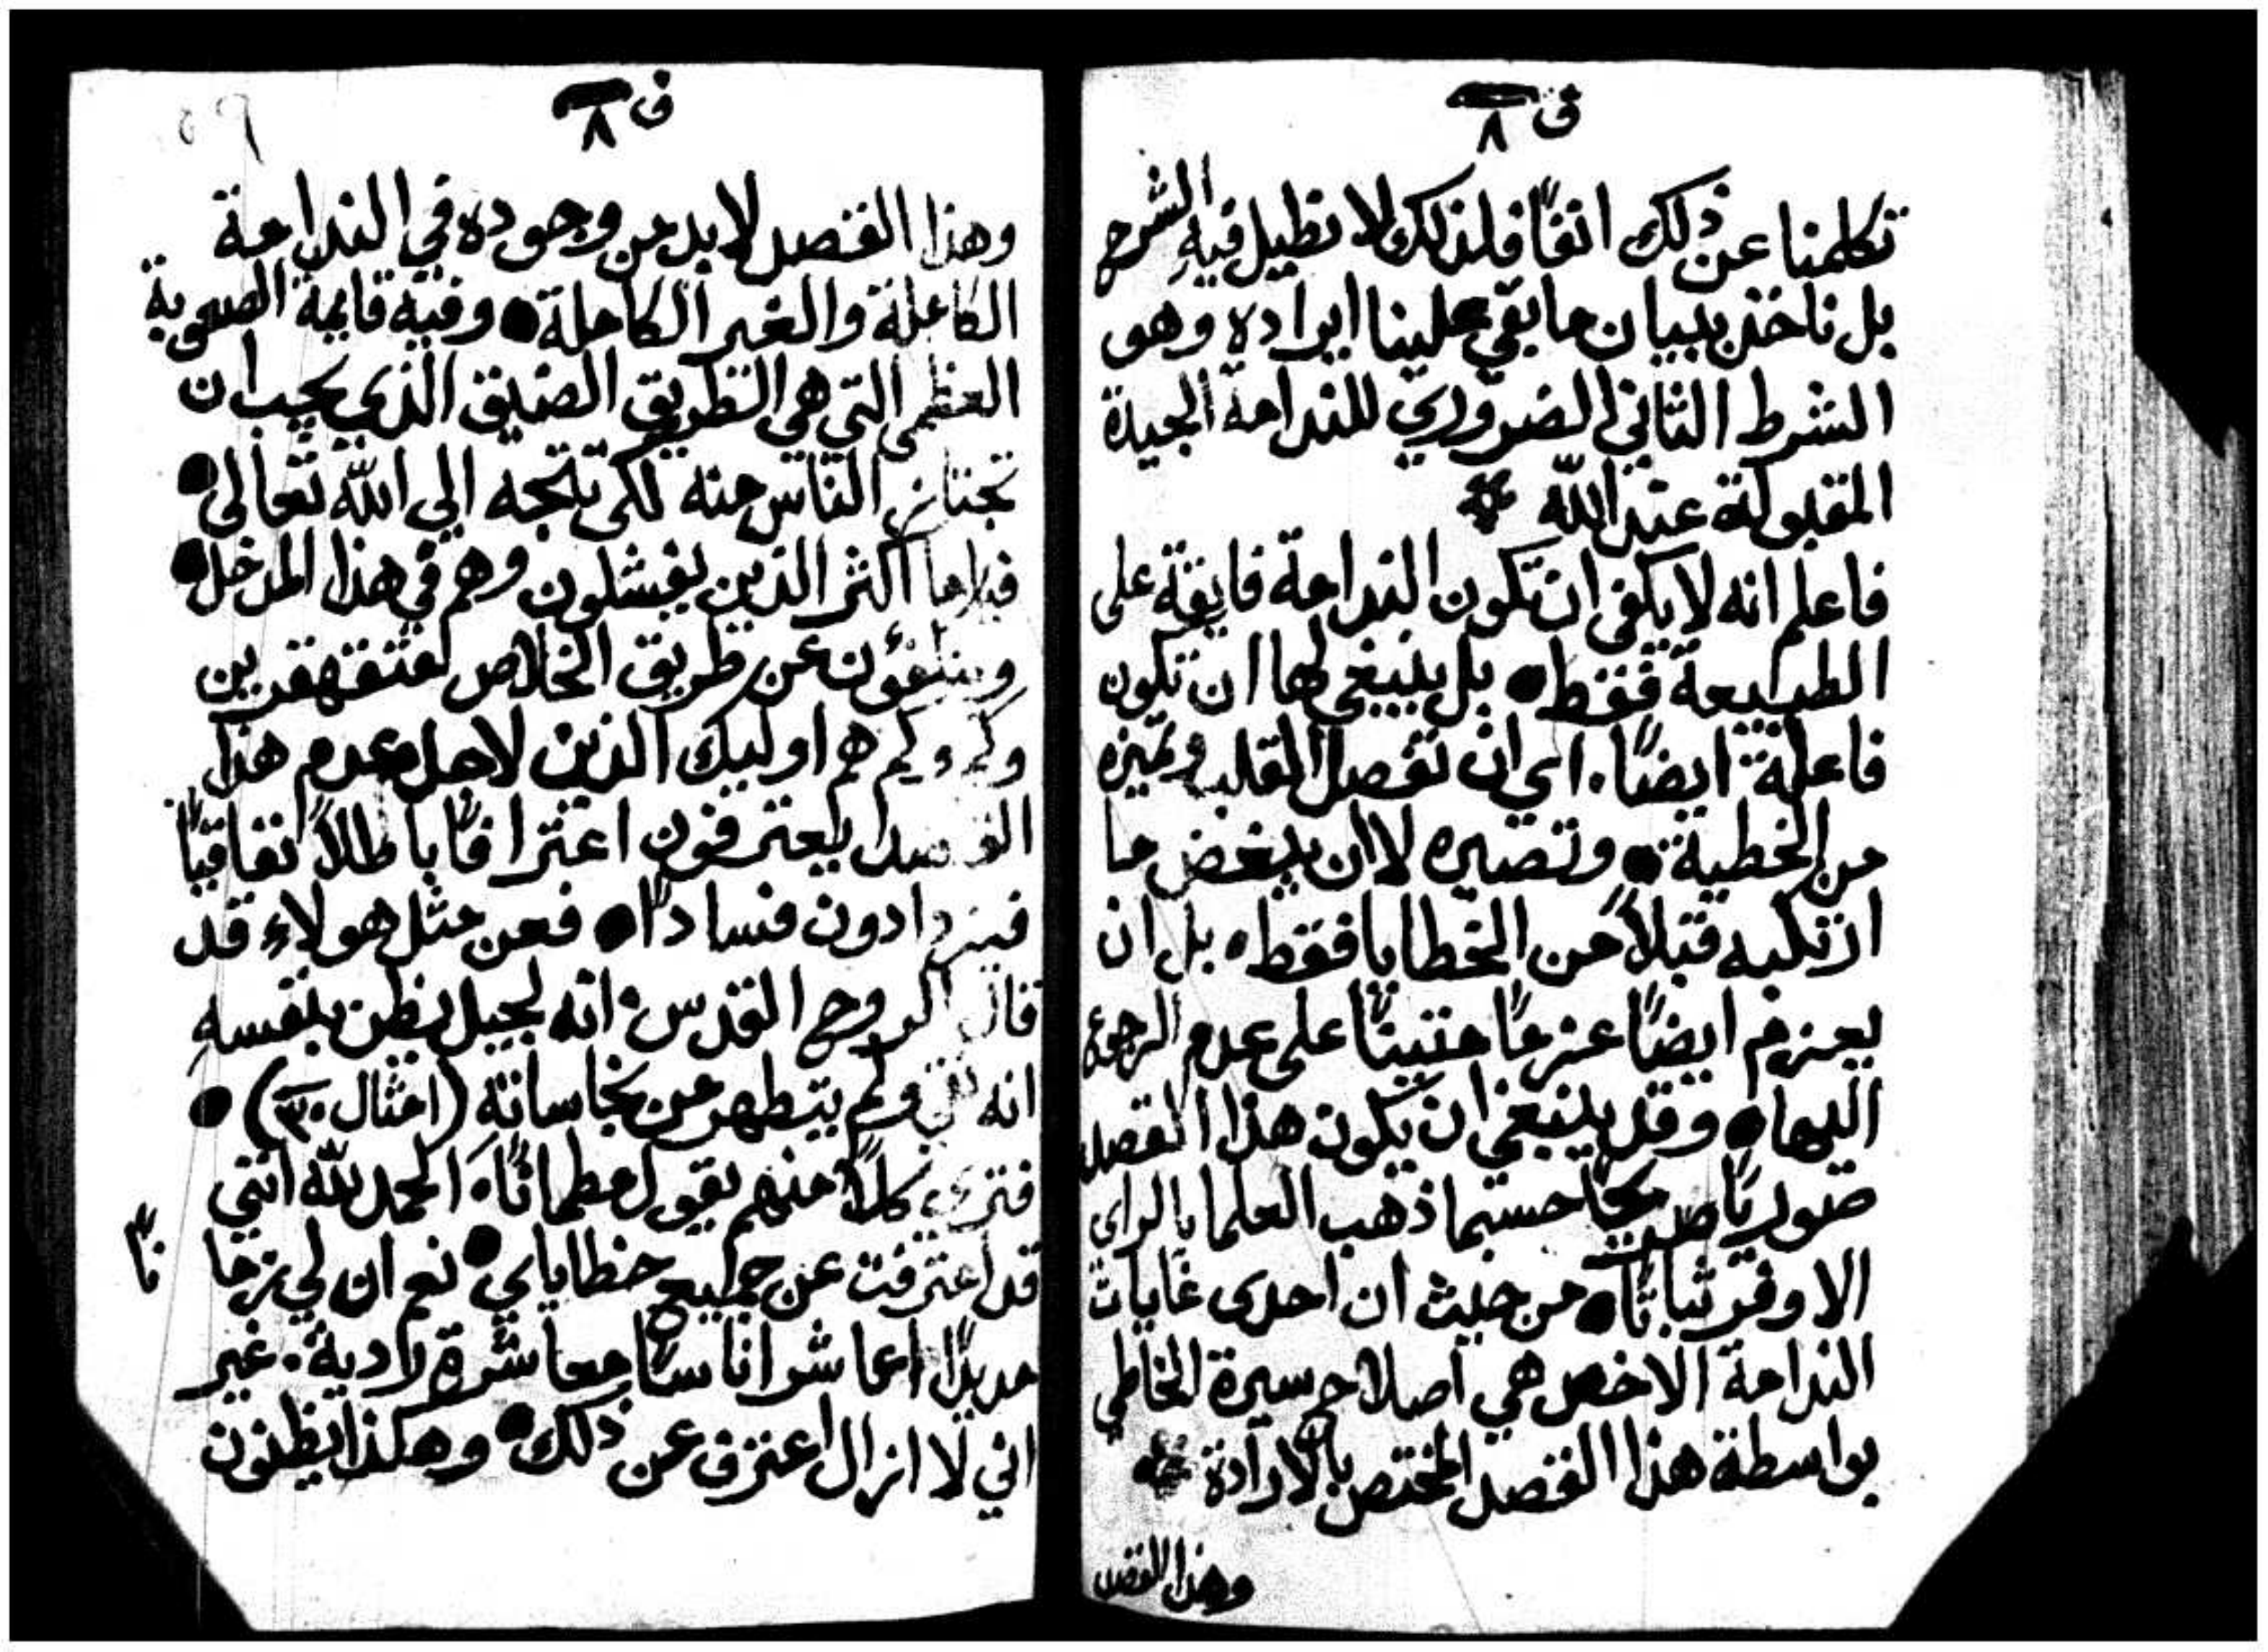 ق ٨
تكلمنا عن ذلك انفًا فلذلك لا نطيل فيهِ الشرح
بل ناخذ ببيان ما بقي علينا ايراده وهو
الشرط الثاني الضروري للندامة الجيدة
المقبولة عند الله
فاعلم انه لا يكفي ان تكون الندامة فايقة على
الطبيعة فقط • بل ينبغي لها ان تكون
فاعلة ايضًا. اي ان تفصل القلب وتميزه
من الخطية • وتصيره لا ان يبغض ما
ارتكبه قبلاً من الخطايا فقط • بل ان
يعزم ايضًا عزمًا متينًا على عدم الرجوع
اليها • وقد ينبغي ان يكون هذا القصد
صوريًا صريحًا حسبما ذهب العلما بالراى
الاوفر ثباتًا • من حيث ان احدى غايات
الندامة الاخص هي اصلاح سيرة الخاطي
بواسطة هذا القصد المختص بالارادة
وهذا القصد
ق ٨
وهذا القصد لا بد من وجوده في الندامة
الكاملة والغير الكاملة • وفيه قايمة الصعوبة
العظمى التي هي الطريق الضيق الذي يجب ان
تجتاز الناس منه لكي تتجه الي الله تعالى •
فياما اكثر الذين يفشلون وهم في هذا المدخل •
عن طريق الخلاص متقهقرين
وكم وكم هم اوليك الذين لاجل عدم هذا
القصد يعترفون اعترافًا باطلاً نفاقيًا
فيزدادون فسادًا • فعن مثل هولاء قد
قال الروح القدس • انه لجيل يظن بنفسهِ
انه نقي ولم يتطهر من نجاساته (امثال ٣٠) •
فترى كلاً منهم يقول مطمانًا • الحمد لله انني
قد اعترفت عن جميع خطاياي • نعم ان لي زما
نًا
مديدًا اعاشر اناسًا معاشرة رادية. غير
اني لا ازال اعترف عن ذلك • وهكذا يظنون